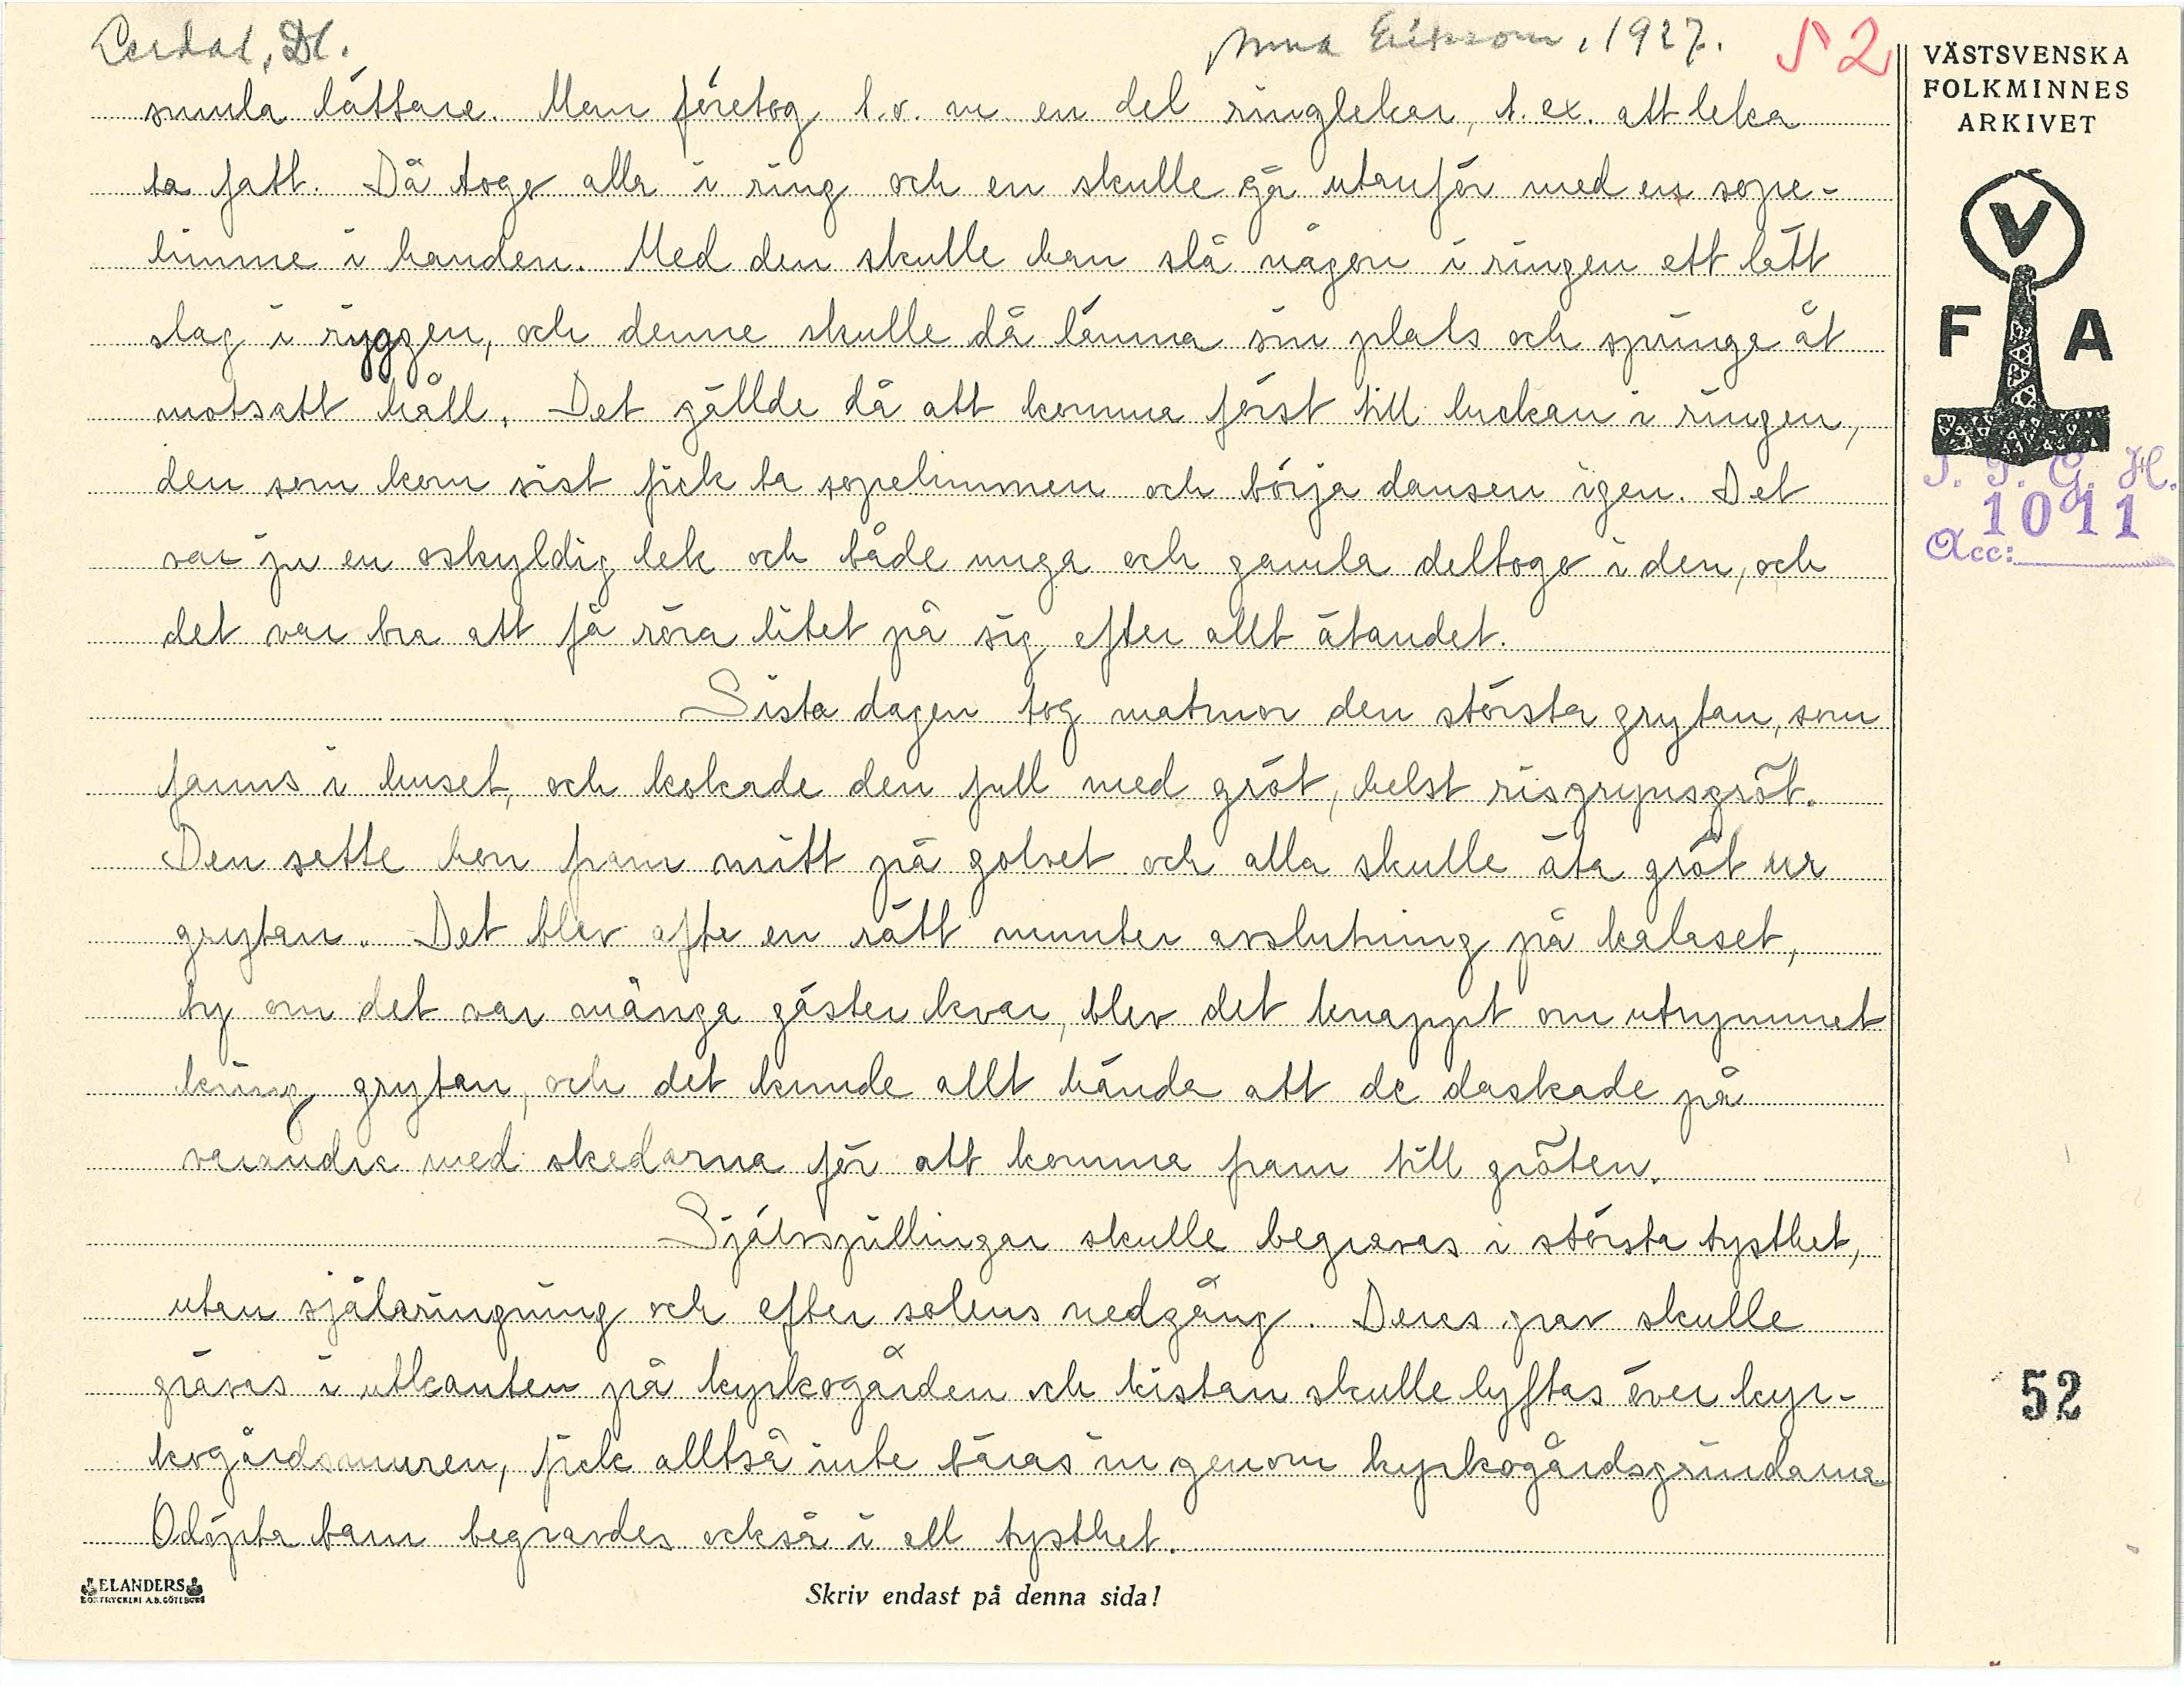 Lerdal, Dl. Anna Eriksson, 1927. 52
smula lättare. Man företog t.o. m. en del ringlekar, t. ex. att leka
ta fatt. Då togo alla i ring och en skulle gå utanför med en sope-
limme i handen. Med den skulle han slå någon i ringen ett lätt
slag i ryggen, och denne skulle då lämna sin plats och springa åt
motsatt håll. Det gällde då att komma först till luckan i ringen,
den som kom sist fick ta sopelimmen och börja dansen igen. Det
var ju en oskyldig lek och både unga och gamla deltogo i den, och
det var bra att få röra litet på sig efter allt ätandet.
Sista dagen tog matmor den största grytan, som
fanns i huset, och kokade den full med gröt, helst risgrynsgröt.
Den satte hon fram mitt på golvet och alla skulle äta gröt ur
grytan. Det blev ofta en rätt munter avslutning på kalaset,
ty om det var många gäster kvar, blev det knappt om utrymmet
kring grytan, och det kunde allt hända att de daskade på
varandra med skedarna för att komma fram till gröten.
Självspillingar skulle begravas i största tysthet,
utan själaringning och efter solens nedgång. Deras grav skulle
grävas i utkanten på kyrkogården och kistan skulle lyftas över kyr-
kogårdsmuren, fick alltså inte bäras in genom kyrkogårdsgrindarna
Odöpta barn begravdes också i all tysthet.
ELANDERS
BOKTRYCKERI A.B. GÖTEBORG
Skriv endast på denna sida!
VÄSTSVENSKA
FOLKMINNES
ARKIVET
V
F A
I. F. G. H.
1011
Acc:
52